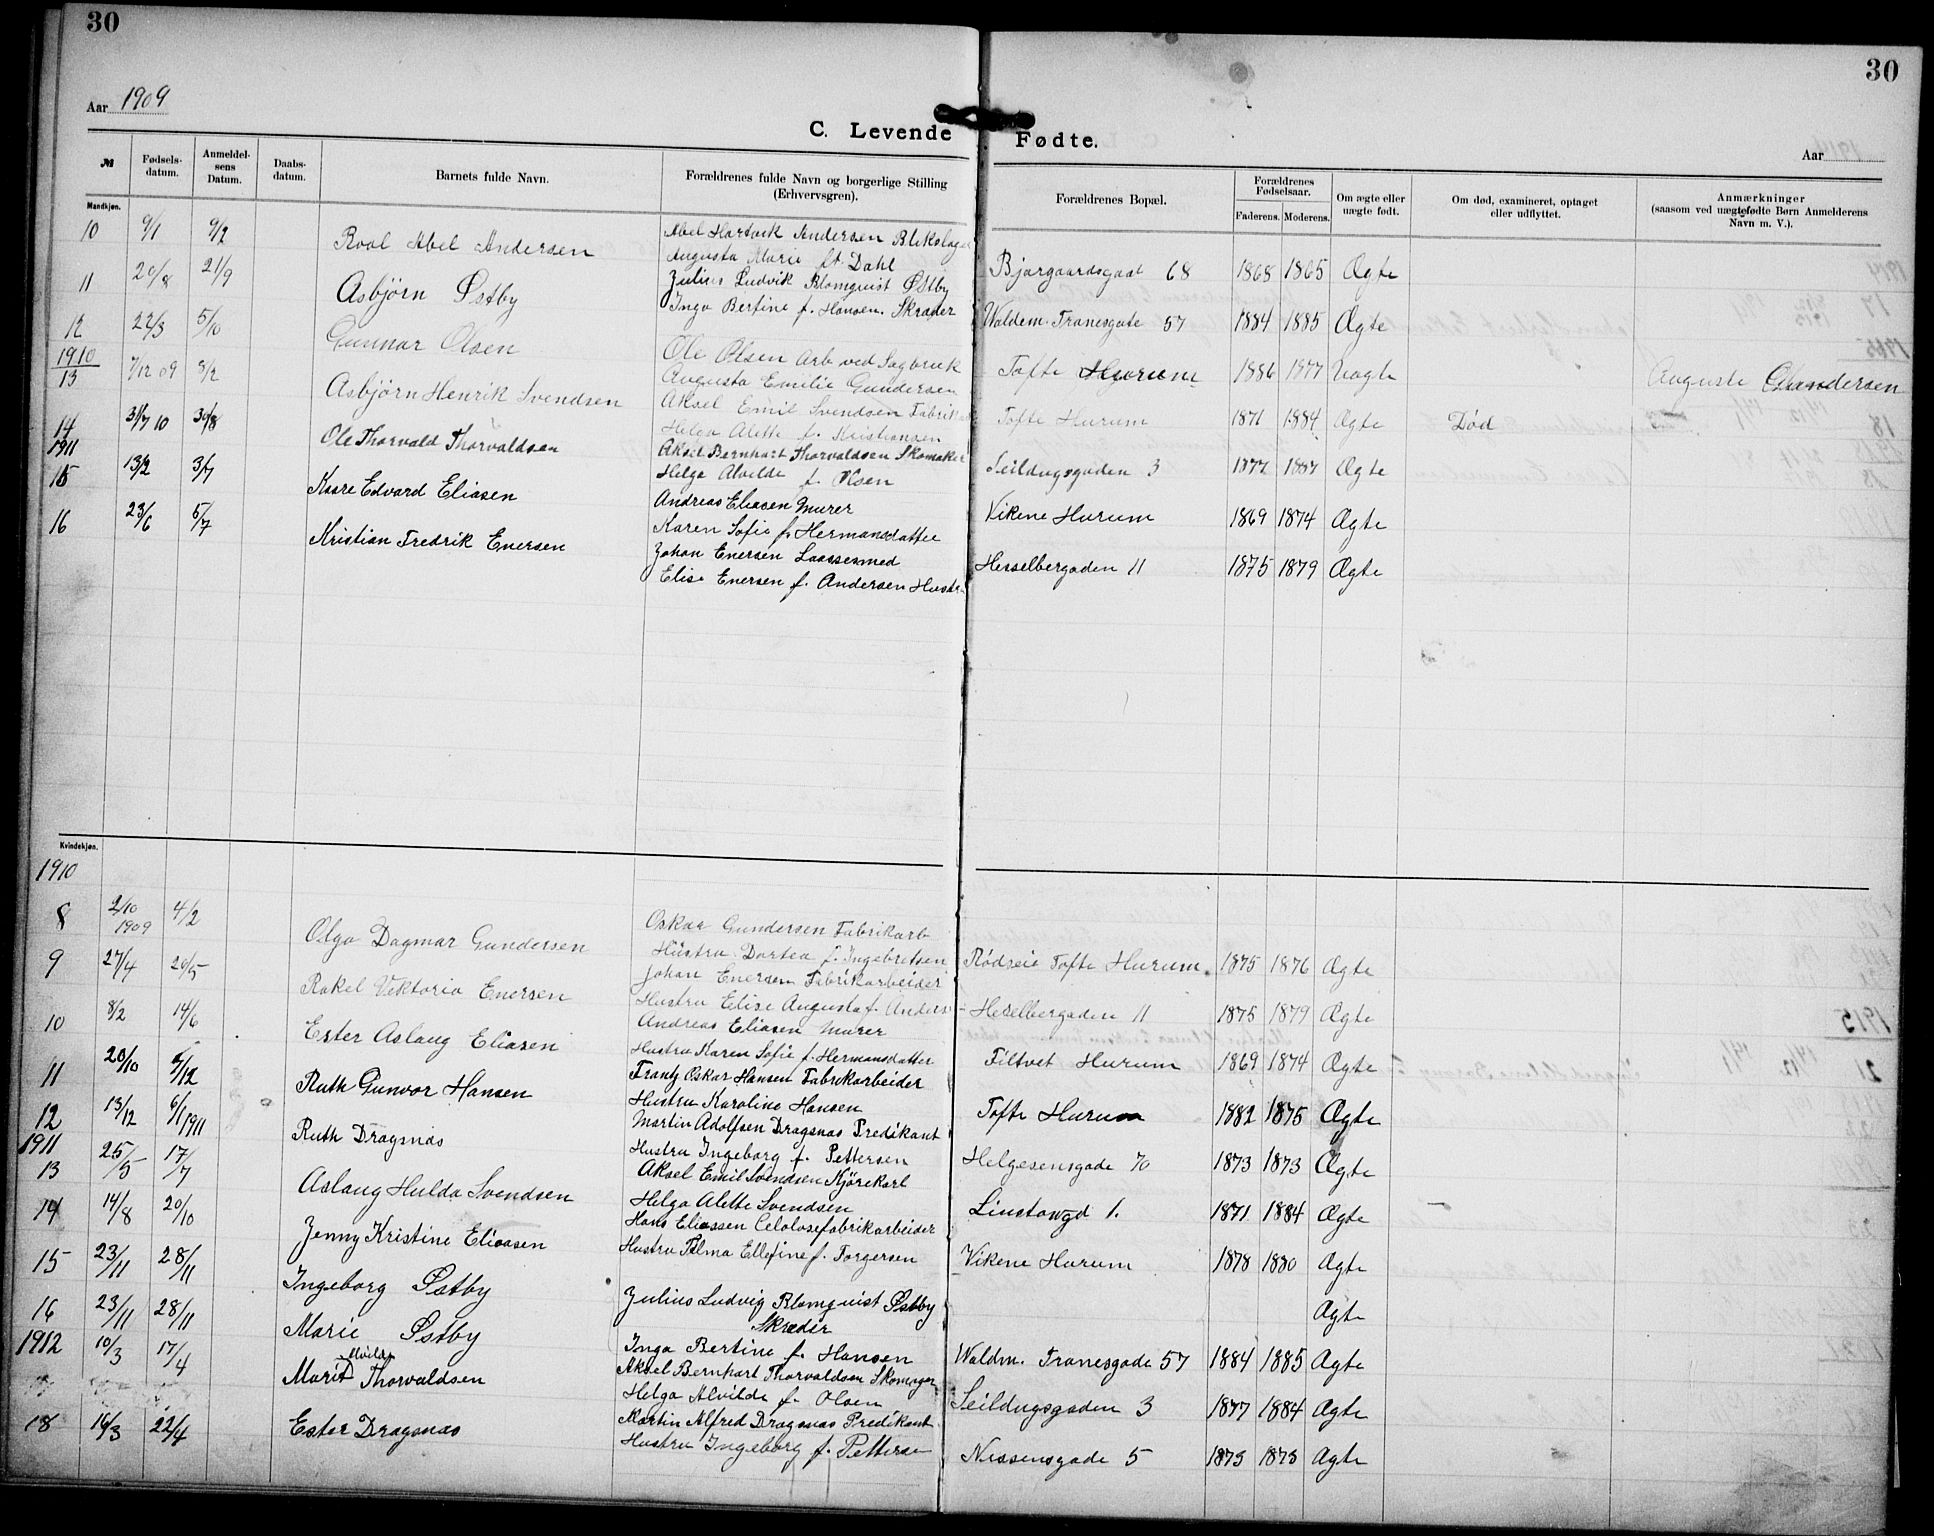 30
30
Aar 1909
Aar
C. Levende Fødte.
№
Fødsels-datum.
Anmeldel-sens Datum.
Daabs-datum.
Barnets fulde Navn.
Forældrenes fulde Navn og borgerlige Stilling (Erhvervsgren).
Forældrenes Bopæl.
Forældrenes Fødselsaar.
Faderens. Moderens.
Om ægte eller uægte født.
Om død, examineret, optaget eller udflyttet.
Anmærkninger (saasom ved uægtefødte Børn Anmelderens Navn m. V.).
Mandkjøn.
10 9/1 9/2 Roal Abel Andersen
Abel Hartvik Andersen Blikslager
Augusta Marie f. Dahl
Bjergaardsgaat 68 1868 1865 Ægte
11 20/8 21/9 Asbjörn Østby
Julius Ludvik Blomquist Østby
Inga Bertine f. Hansen. Skræder
Waldem. Tranesgate 57 1884 1885 Ægte
12 22/3 5/10 Gunnar Olsen
Ole Olsen Arb ved Sagbruk
Augusta Emilie Gundersen
Tofte Hurum 1886 1877 Uægte
1910
13 7/12 09 8/2 Asbjörn Henrik Svendsen
Aksel Emil Svendsen Fabrik
Helga Alette f. Kristiansen
Tofte Hurum 1871 1884 Ægte Død
14 31/7 10 30/8 Ole Thorvald Thorvaldsen
Aksel Bernhart Thorvaldsen Skomaker
Helga Alvilde f. Olsen
Seildugsgaden 3 1877 1884 Ægte
1911
15 13/2 3/7 Kaare Edvard Eliasen
Andreas Eliasen Murer
Karen Sofie f. Hermansdatter
Vikene Hurum 1869 1874 Ægte
16 23/6 5/7 Kristian Fredrik Enersen
Johan Enersen Laassesmed
Elise Enersen f. Andersen Hustr
Hesselbergaden 11 1875 1879 Ægte
Kvindekjøn.
1910
8 2/10 1909 4/2 Olga Dagmar Gundersen
Oskar Gundersen Fabrikarb
Hustru Dortea f. Ingebretsen
Rødseie Tofte Hurum. 1875 1876 Ægte
9 27/4 20/5 Rakel Viktoria Enersen
Johan Enersen Fabrikarbeider
Hustru Elise Augusta f. Anders
Heselbergaden 11 1875 1879 Ægte
10 8/2 14/6 Ester Aslaug Eliasen
Andreas Eliasen Murer
Hustru Karen Sofie f. Hermansdatter
Filtvet Hurum 1869 1874 Ægte
11 20/10 5/12 Ruth Gunvor Hansen
Frantz Oskar Hansen Fabrikarbeider
Hustru Karoline Hansen
Tofte Hurum 1882 1875 Ægte
12 13/12 6/1 1911 Ruth Dragsnas
Martin Adolfsen Dragsnas Predikant
Hustru Ingeborg f. Pettersen
Helgesensgade 70 1873 1873 Ægte
1911
13 25/5 17/7 Aslaug Hulda Svendsen
Aksel Emil Svendsen Kjørekarl
Helga Alette Svendsen
1871 1884 Ægte
14 14/8 20/10 Jenny Kristine Eliasen
Hans Eliassen Celolosefabrikarbeider
Hustru Tilma Ellefine f. Torgersen
Vikene Hurum 1878 1880 Ægte
15 23/11 28/11 Ingeborg Østby
Ægte
16 23/11 28/11 Marie Østby
Julius Ludvig Blomquist Østby
Skræder
Inga Bertine f. Hansen
Waldm. Tranesgade 57 1884 1885 Ægte
1912
10/3 17/4 Marit Thorvaldsen
Aksel Bernhart Thorvaldsen Skomager
Helga Alvilde f. Olsen
Seildugsgaden 3 1877 1884 Ægte
18 16/3 22/4 Ester Dragsnas
Martin Alfred Dragsnas Predikant
Hustru Ingeborg f. Petterse
Nissensgade 5 1873 1873 Ægte